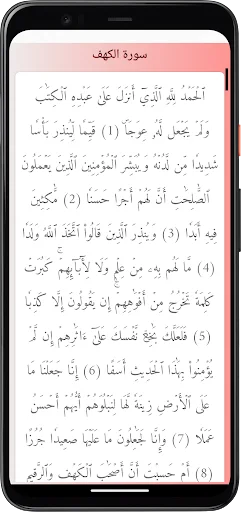 سورة الكهف
ٱلۡحَمۡدُ لِلَّهِ ٱلَّذِيٓ أَنزَلَ عَلَىٰ عَبۡدِهِ ٱلۡكِتَٰبَ
وَلَمۡ يَجۡعَل لَّهُۥ عِوَجَاۜ (1) قَيِّمٗا لِّيُنذِرَ بَأۡسٗا
شَدِيدٗا مِّن لَّدُنۡهُ وَيُبَشِّرَ ٱلۡمُؤۡمِنِينَ ٱلَّذِينَ يَعۡمَلُونَ
ٱلصَّٰلِحَٰتِ أَنَّ لَهُمۡ أَجۡرًا حَسَنٗا (2) مَّٰكِثِينَ
فِيهِ أَبَدٗا (3) وَيُنذِرَ ٱلَّذِينَ قَالُواْ ٱتَّخَذَ ٱللَّهُ وَلَدٗا
(4) مَّا لَهُم بِهِۦ مِنۡ عِلۡمٖ وَلَا لِأٓبَآئِهِمۡۚ كَبُرَتۡ
كَلِمَةٗ تَخۡرُجُ مِنۡ أَفۡوَٰهِهِمۡۚ إِن يَقُولُونَ إِلَّا كَذِبٗا
(5) فَلَعَلَّكَ بَٰخِعٞ نَّفۡسَكَ عَلَىٰٓ ءَاثَٰرِهِمۡ إِن لَّمۡ
يُؤۡمِنُواْ بِهَٰذَا ٱلۡحَدِيثِ أَسَفًا (6) إِنَّا جَعَلۡنَا مَا
عَلَى ٱلۡأَرۡضِ زِينَةٗ لَّهَا لِنَبۡلُوَهُمۡ أَيُّهُمۡ أَحۡسَنُ
عَمَلٗا (7) وَإِنَّا لَجَٰعِلُونَ مَا عَلَيۡهَا صَعِيدٗا جُرُزًا
(8) أَمۡ حَسِبۡتَ أَنَّ أَصۡحَٰبَ ٱلۡكَهۡفِ وَٱلرَّقِيمِ